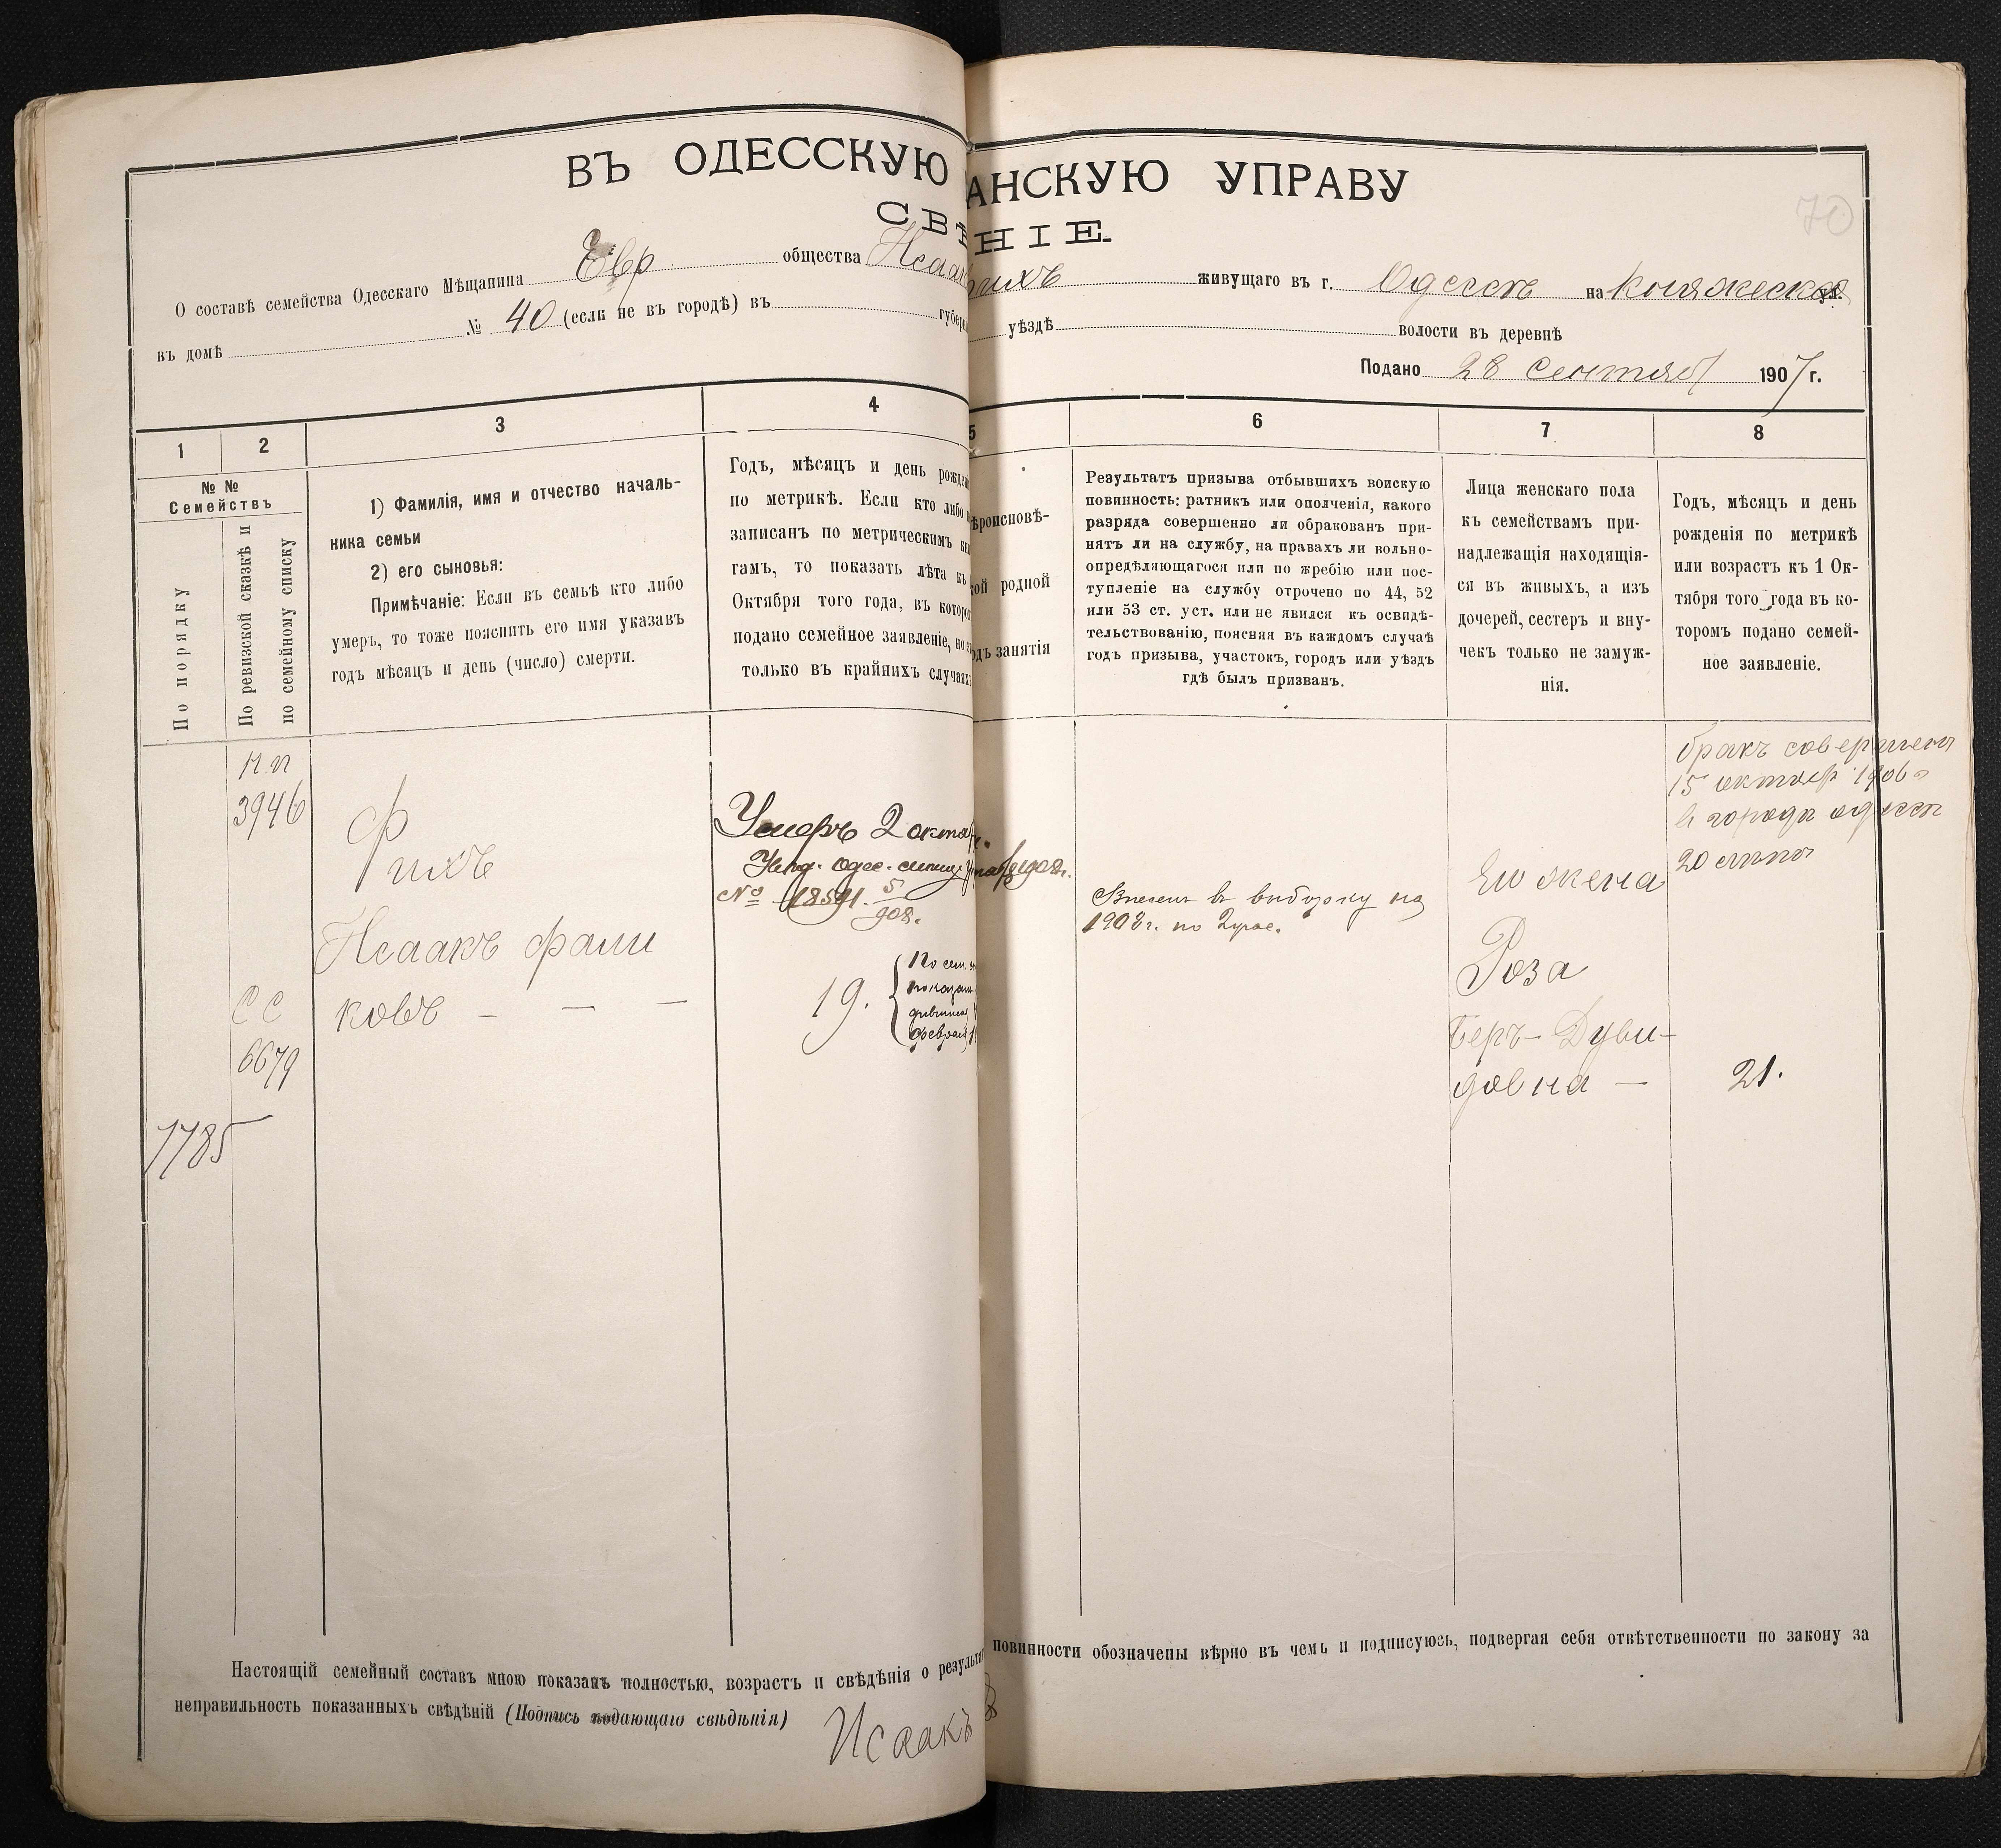 ВЪ ОДЕССКУЮ АНСКУЮ УПРАВУ
СВѢ НІЕ.
70
О составѣ семейства Одесскаго Мѣщанина Евр общества Исаак Фихъ живущаго въ г. Одессѣ на Княжеской ул.
въ домѣ № 40 (если не въ городѣ) въ губерн уѣздѣ волости въ деревнѣ
Подано 28 Сентяб 1907 г.
1 2 3 4 5 6 7 8
№ №
Семействъ
По порядку
По ревизской сказкѣ и
по семейному списку
1) Фамилія, имя и отчество началь-
ника семьи
2) его сыновья:
Примѣчаніе: Если въ семьѣ кто либо
умеръ, то тоже пояснить его имя указавъ
годъ мѣсяцъ и день (число) смерти.
Годъ, мѣсяцъ и день рожден
по метрикѣ. Если кто либо
записанъ по метрическимъ кни
гамъ, то показать лѣта къ
Октября того года, въ которо
подано семейное заявленіе, но
только въ крайнихъ случаяхъ
ѣроисповѣ-
кой родной
одъ занятія
Результатъ призыва отбывшихъ воискую
повинность: ратникъ или ополченія, какого
разряда совершенно ли обракованъ при-
нятъ ли на службу, на правахъ ли вольно-
опредѣляющагося или по жребію или пос-
тупленіе на службу отрочено по 44, 52
или 53 ст. уст. или не явился къ освидѣ-
тельствованію, поясняя въ каждомъ случаѣ
годъ призыва, участокъ, городъ или уѣздъ
гдѣ былъ призванъ.
Лица женскаго пола
къ семействамъ при-
надлежащія находящія-
ся въ живыхъ, а изъ
дочерей, сестеръ и вну-
чекъ только не замуж-
нія.
Годъ, мѣсяцъ и день
рожденія по метрикѣ
или возрастъ къ 1 Ок-
тября того года въ ко-
торомъ подано семей-
ное заявленіе.
пп
3946
СС
6679
1785
Фихъ
Исаакъ Фали
ковъ — — —
Умеръ 2 октяб
№ 18591. 5/908.
19.
По сем.
показан
февраля
Внесенъ в выборку на
1908 г. по 2 учас.
Его жена
Роза
Беръ-Дуви-
довна —
бракъ совершенъ
15 октяб 1906 г
в городѣ одессѣ
20 лѣтъ
21.
Настоящій семейный составъ мною показанъ полностью, возрастъ и свѣдѣнія о результат повинности обозначены вѣрно въ чемъ и подписуюсь, подвергая себя отвѣтственности по закону за
неправильность показанныхъ свѣдѣній (Подпись подающаго свѣдѣнія) Исаакъ